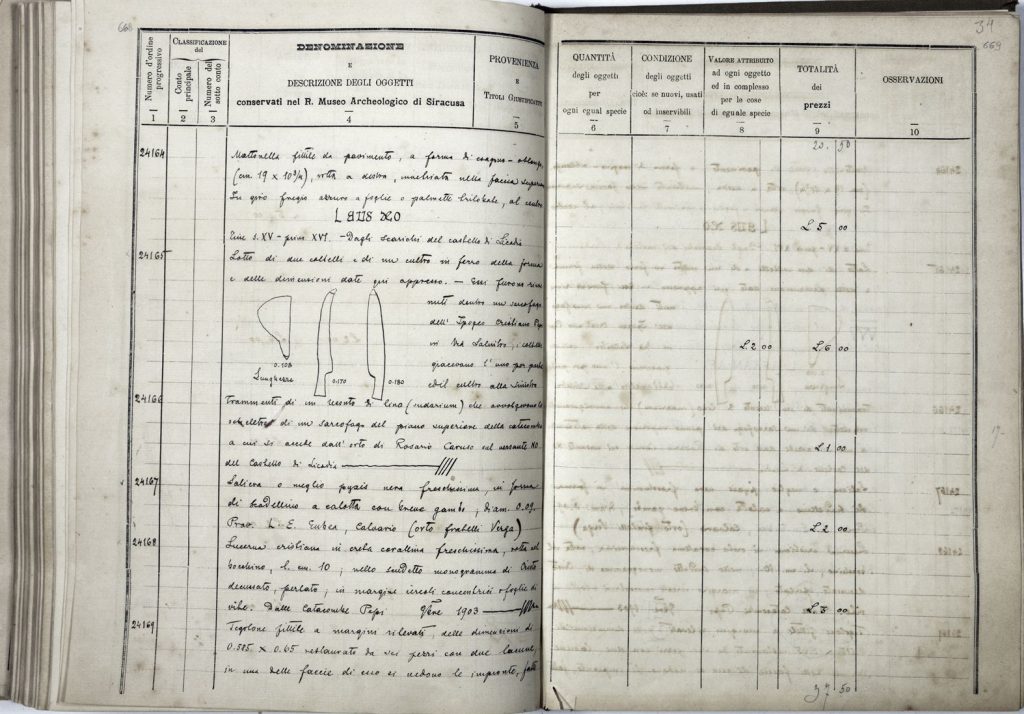 668
Numero d'ordine progressivo
CLASSIFICAZIONE
del
Conto principale
Numero del sotto conto
DENOMINAZIONE
E
DESCRIZIONE DEGLI OGGETTI
conservati nel R. Museo Archeologico di Siracusa
PROVENIENZA
E
TITOLI GIUSTIFICATIVI
1 2 3 4 5
24164
Mattonella fittile da pavimento, a forma di oblunga
(cm. 19 x 10¾), rotta a destra, nella faccia superiore
In giro fregio a foglie o palmette trilobate, al centro
Fine s. XV - princ XVI. - Dagli scarichi del castello di Licodia
24165
Lotto di due coltelli e di un cultro in ferro della forma
e delle dimensioni date qui appresso. - Essi furono rinve
nuti dentro un sarcofago
dell' Ipogeo Cristiano
in Via ; i coltelli
giacevano l'uno per parte
ed il cultro alla sinistra
0.108
Lunghezze
0.170
0.180
24166
Frammenti di un tessuto di lino (sudarium), che avvolgevano lo
scheletro di un sarcofago del piano superiore della catacomba
a cui si accede dall' orto di Rosario Caruso sul versante NO.
del Castello di Licodia
24167
Saliera o meglio pyxis nera freschissima, in forma
di scodellino a calotta con breve gambo, diam. 0.09.
Prov. L. E. Eubea, Calvario (orto fratelli Verga)
24168
Lucerna cristiana in creta corallina freschissima, rotta nel
bocchino, l. cm. 10; nello scudetto monogramma di Cristo
decussato, perlato; in margine circoli concentrici e foglie di
vite. Dalle Catacombe 1903
24169
Tegolone fittile a margini rilevati, delle dimensioni di
0.585 x 0.65 restaurato da sei pezzi con due lacune,
in una delle faccie di esso si vedono le impronte, fatte
34
669
QUANTITÀ
degli oggetti
per
ogni egual specie
CONDIZIONE
degli oggetti
cioè: se nuovi, usati
od inservibili
VALORE ATTRIBUITO
ad ogni oggetto
od in complesso
per le cose
di eguale specie
TOTALITÀ
dei
prezzi
OSSERVAZIONI
6 7 8 9 10
20. 50
L. 5 00
L. 2 00 L. 6 00
L. 1 00
L. 2 00
L. 3 00
37 50